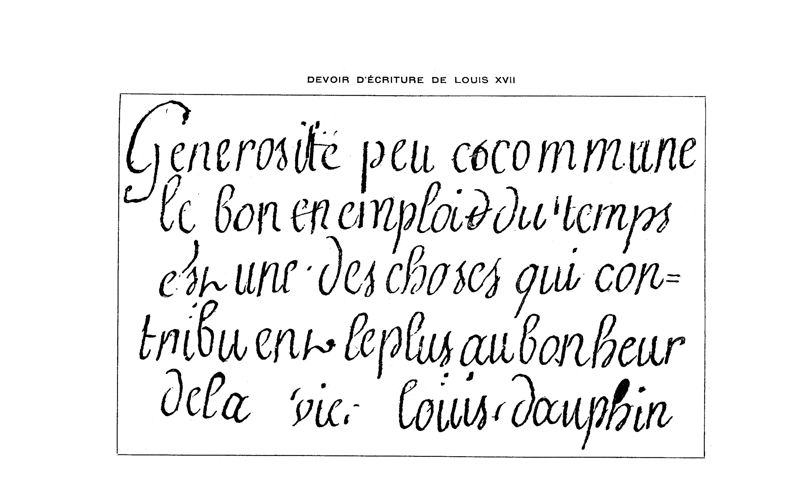 DEVOIR D'ÉCRITURE DE LOUIS XVII
Generosité peu cocommune
le bon en emploi du temps
est une des choses qui con=
tribuent le plus au bonheur
de la vie. louis dauphin